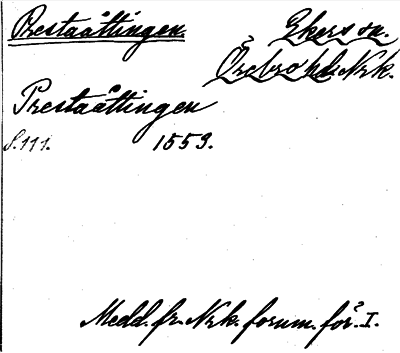 Prestaåttingen. Ekers sn.
Örebro hd. Nrk.
Prestaåttingen
S. 111. 1559.
Medd. fr. Nrk. fornm. för. I.